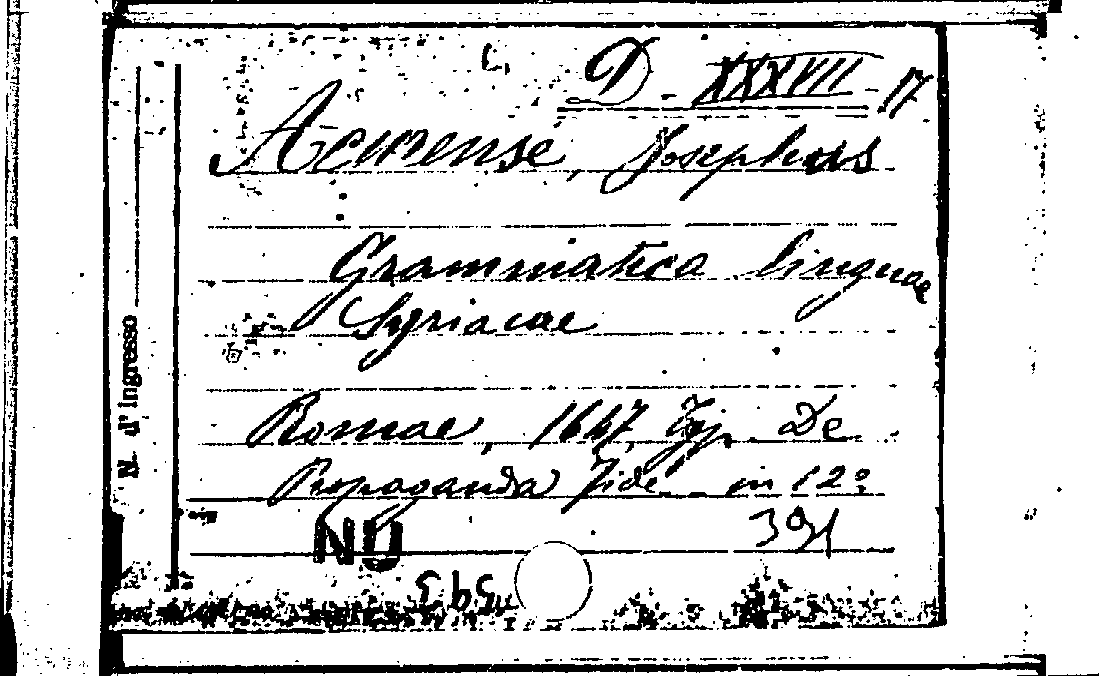 D. XXXVII 17
Acurense, Josephus
Grammatica linguae
Syriacae
Romae, 1647, Typ. De
Propaganda Fide in 12º
391
ND
N. d'ingresso